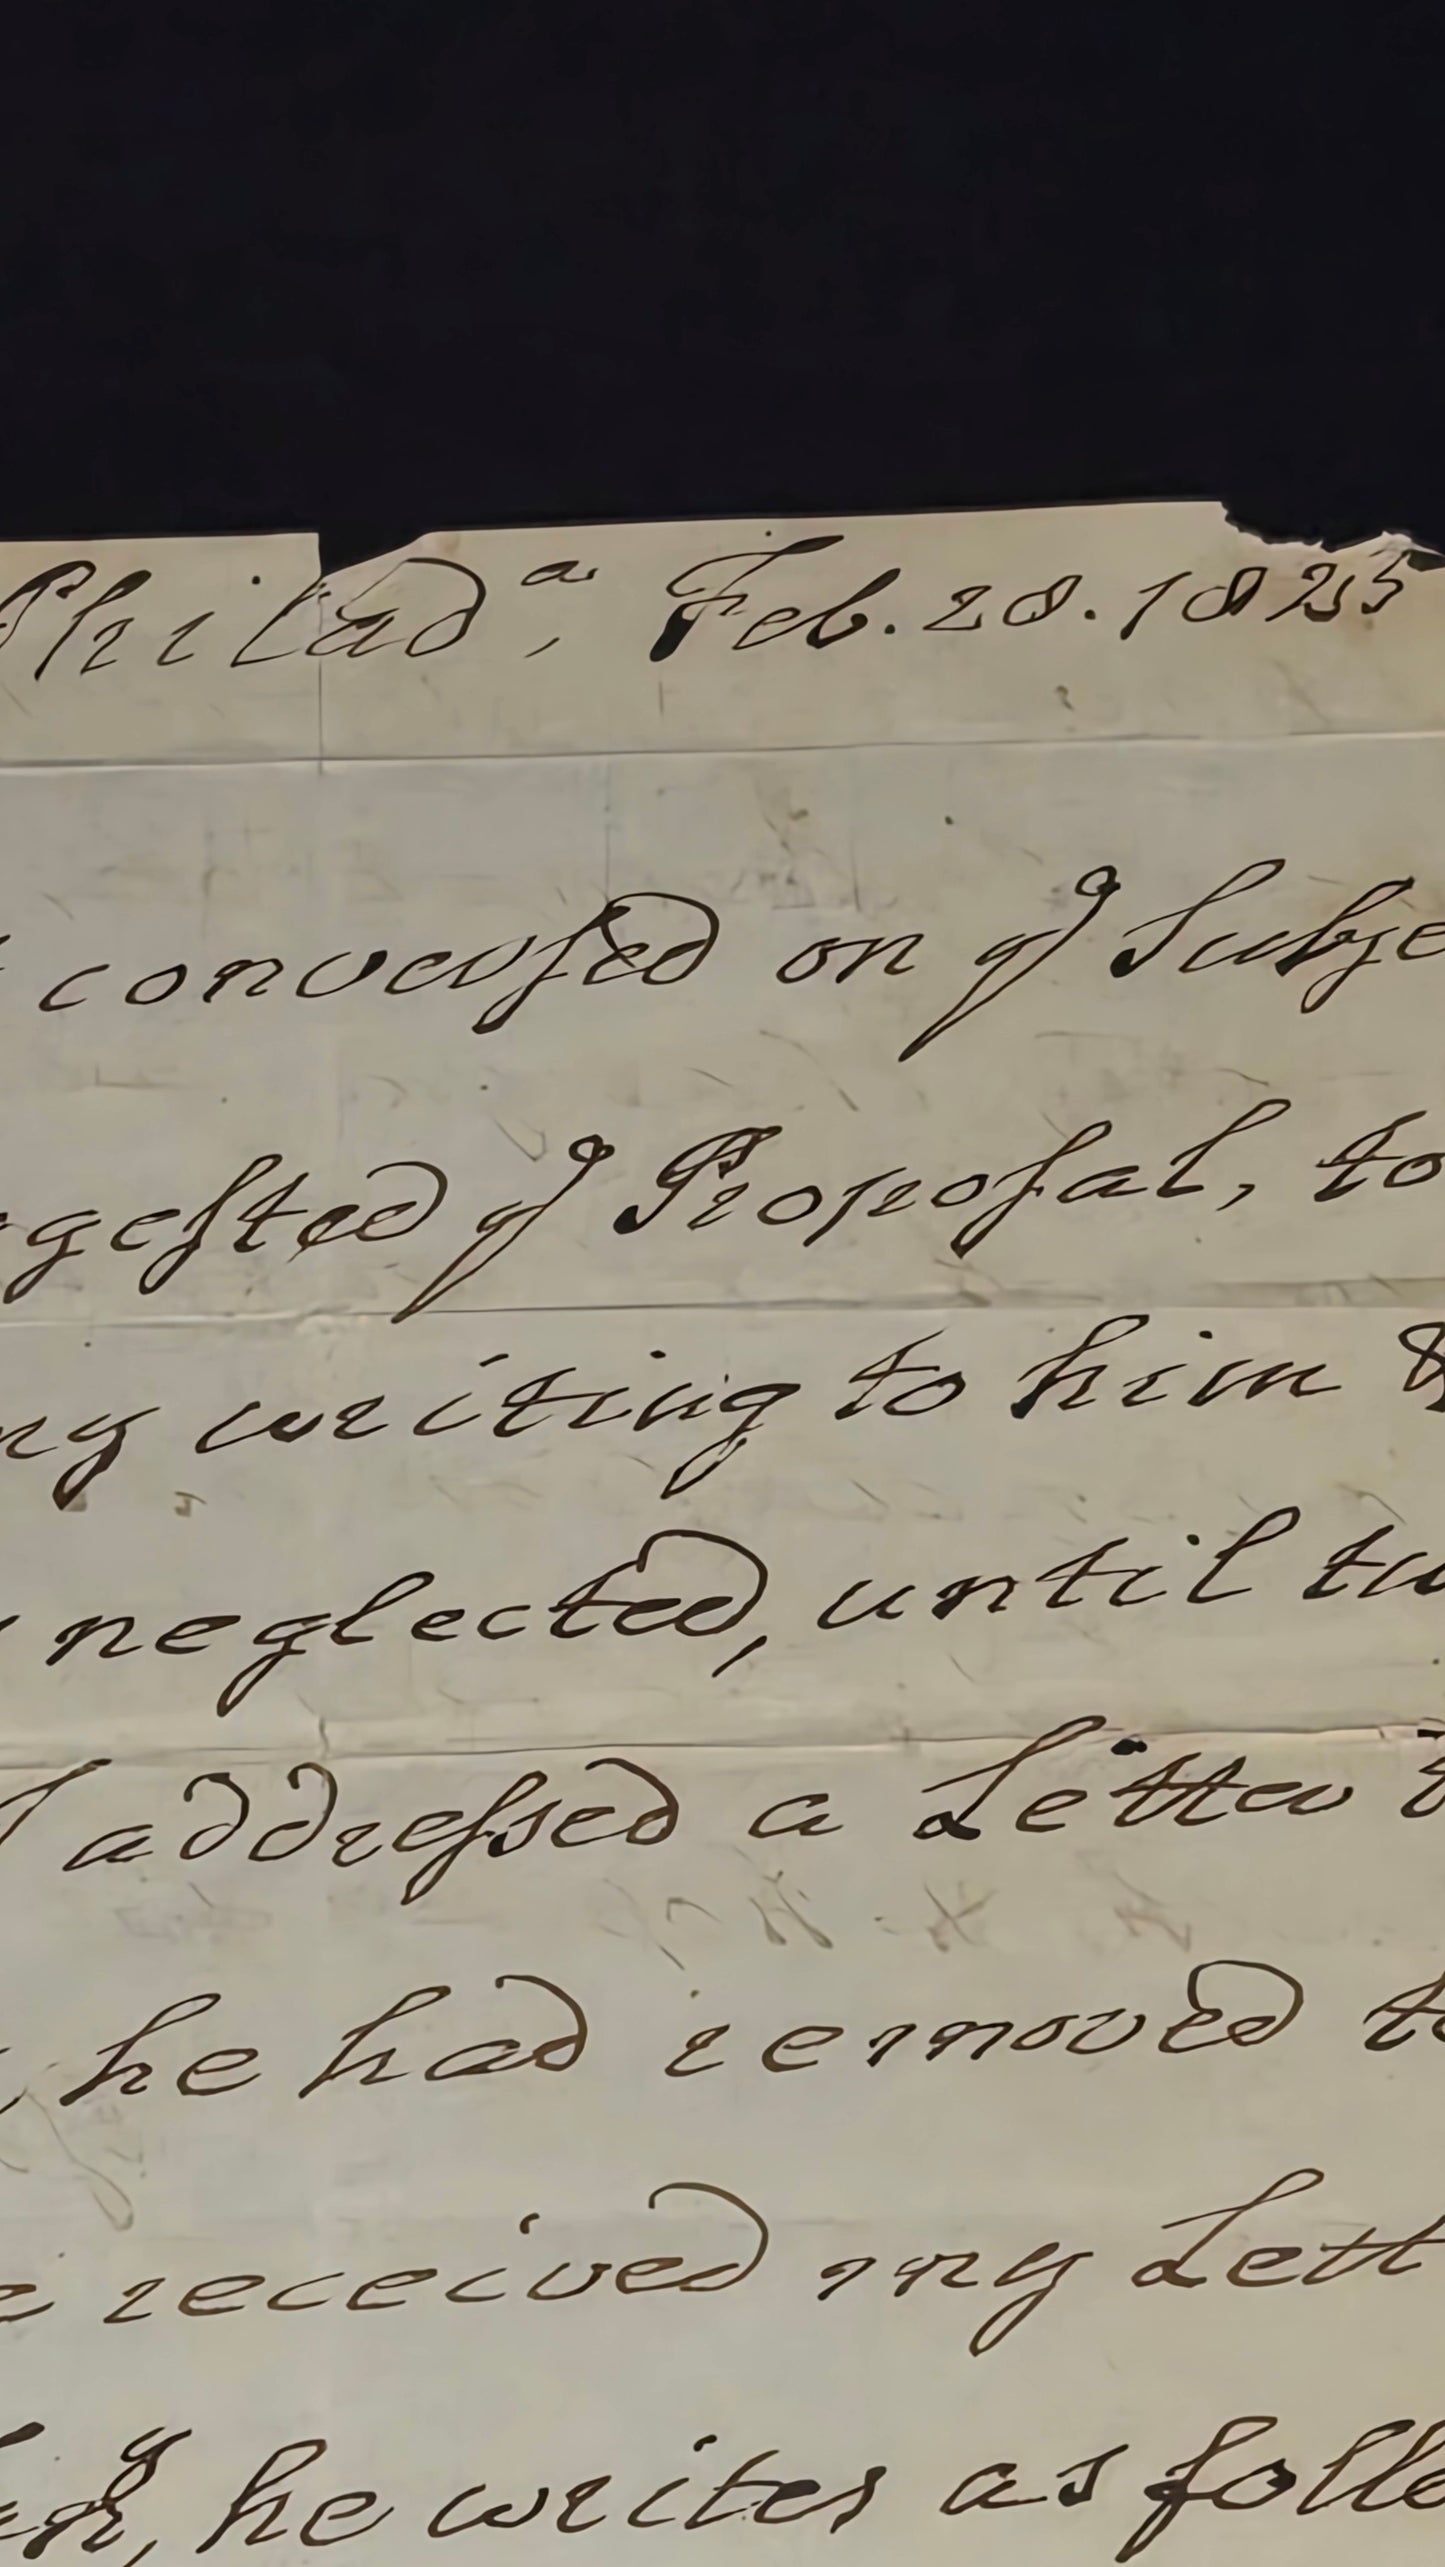 Philad.ᵃ, Feb. 28. 1825
conversed on yᵉ Subje
gested yᵉ Proposal, to
my writing to him &
neglected, until tw
I addressed a Letter t
he had removed to
e received my Lett
he writes as follo